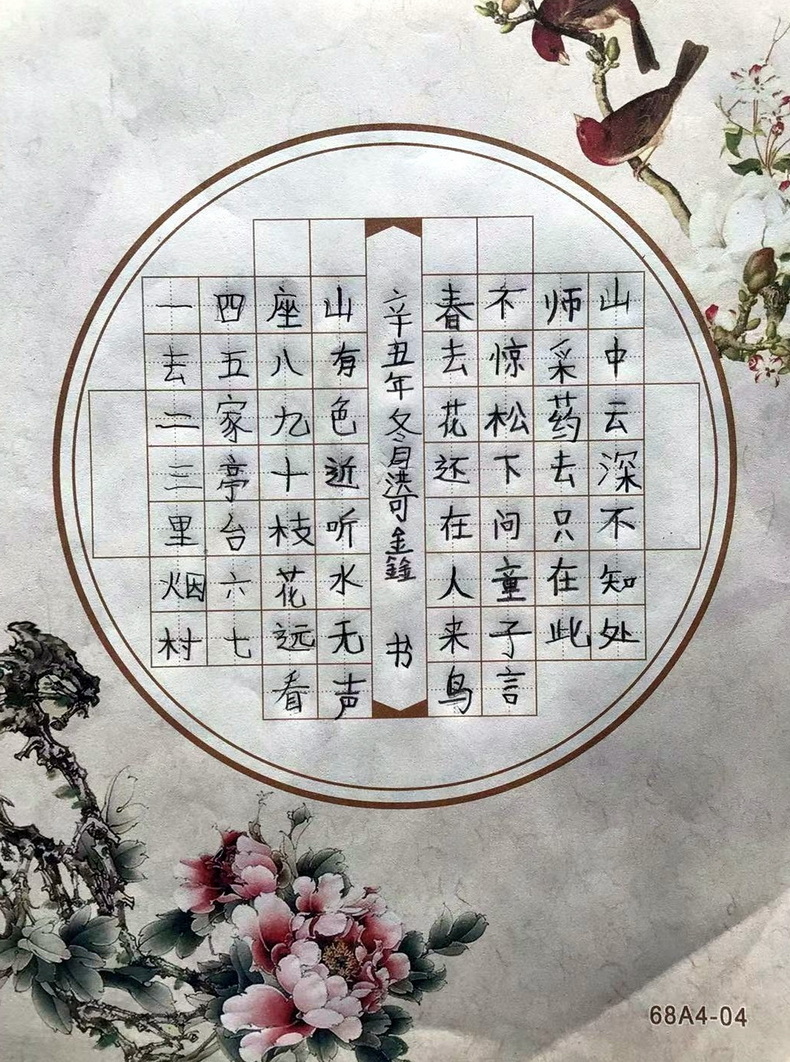 一去二三里烟村
四五家亭台六七
座八九十枝花远看
山有色近听水无声
辛丑年冬月洪可金鑫 书
春去花还在人来鸟
不惊松下问童子言
师采药去只在此
山中云深不知处
68A4-04